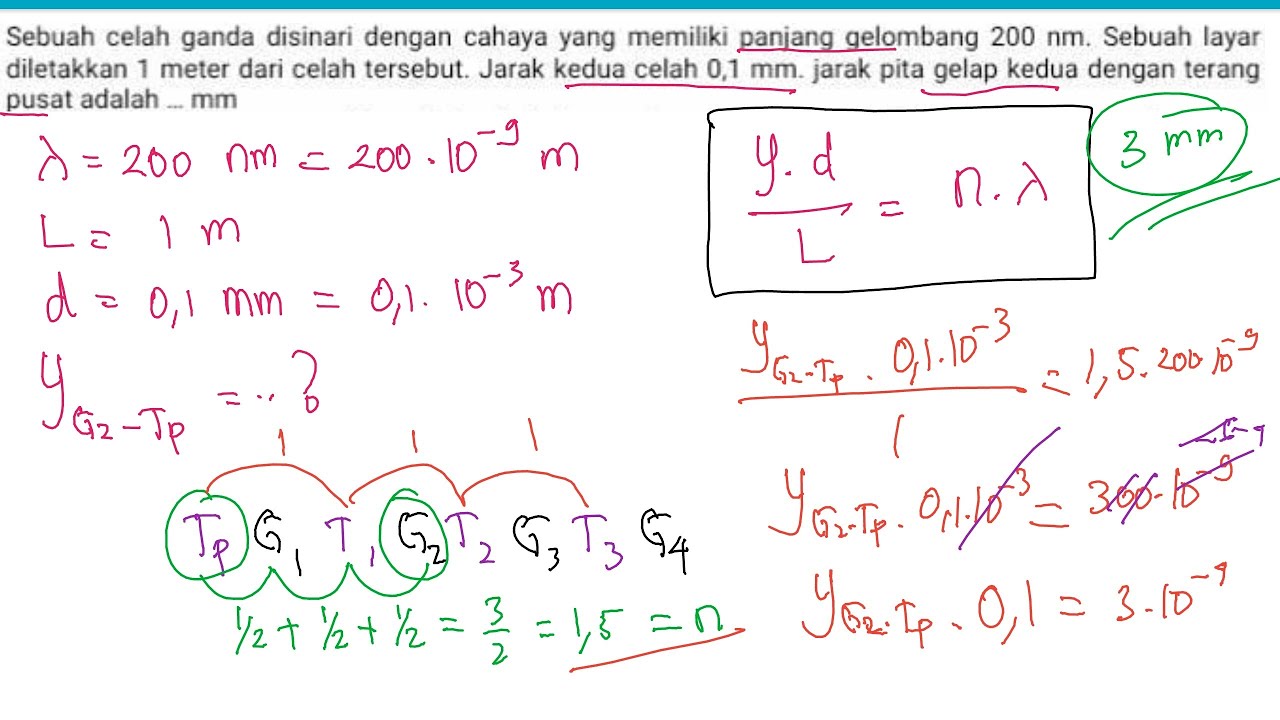 Sebuah celah ganda disinari dengan cahaya yang memiliki panjang gelombang 200 nm. Sebuah layar
diletakkan 1 meter dari celah tersebut. Jarak kedua celah 0,1 mm. jarak pita gelap kedua dengan terang
pusat adalah ... mm
λ = 200 nm = 200 . 10⁻⁹ m
L = 1 m
d = 0,1 mm = 0,1 . 10⁻³ m
y_G₂-Tp = ..?
1 1 1
Tp G₁ T₁ G₂ T₂ G₃ T₃ G₄
1/2 + 1/2 + 1/2 = 3/2 = 1,5 = n
y.d / L = n.λ
3 mm
y_G₂-Tp . 0,1.10⁻³ / 1 = 1,5.200.10⁻⁹
y_G₂-Tp . 0,1.10⁻³ = 300.10⁻⁹
y_G₂-Tp . 0,1 = 3.10⁻⁴